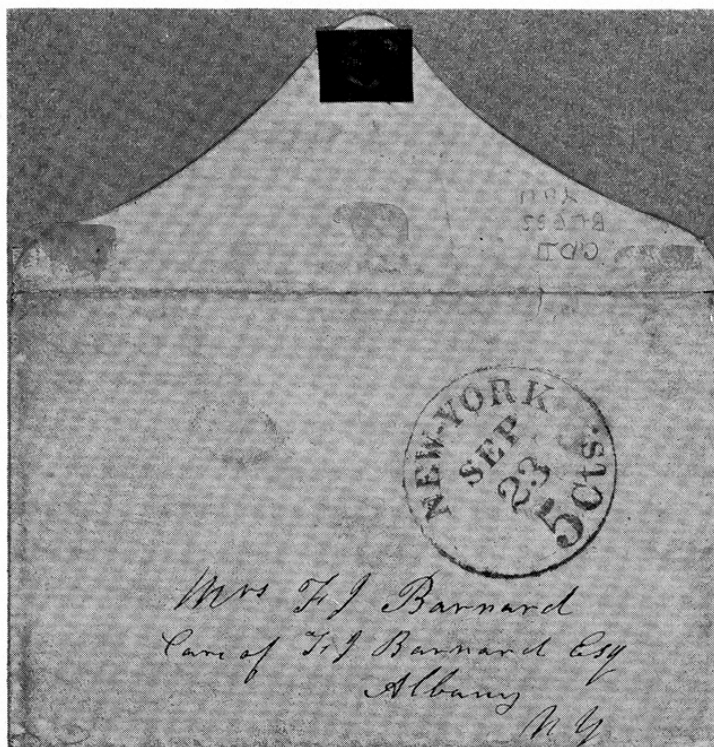 NEW-YORK
SEP
23
5 Cts.
Mrs F J Barnard
Care of F J Barnard Esq
Albany
N Y